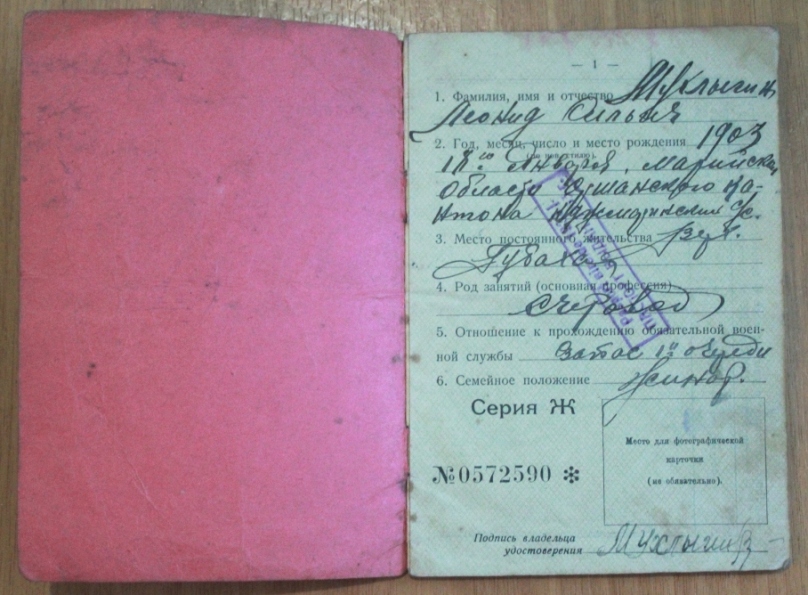 — 1 —
1. Фамилия, имя и отчество Мухлыгин
Леонид Ильич
2. Год, месяц, число и место рождения 1903
(по нов. стилю).
18го Января, Марийская
Области Юшанского ка-
нтона с/с.
3. Место постоянного жительства Верх.
Губаха
4. Род занятий (основная профессия)
счетовод
5. Отношение к прохождению обязательной воен-
ной службы запас 1й очереди
6. Семейное положение женат.
Серия Ж
Место для фотографической
карточки
(не обязательно).
№ 0572590 ✻
Подпись владельца
удостоверения Мухлыгин